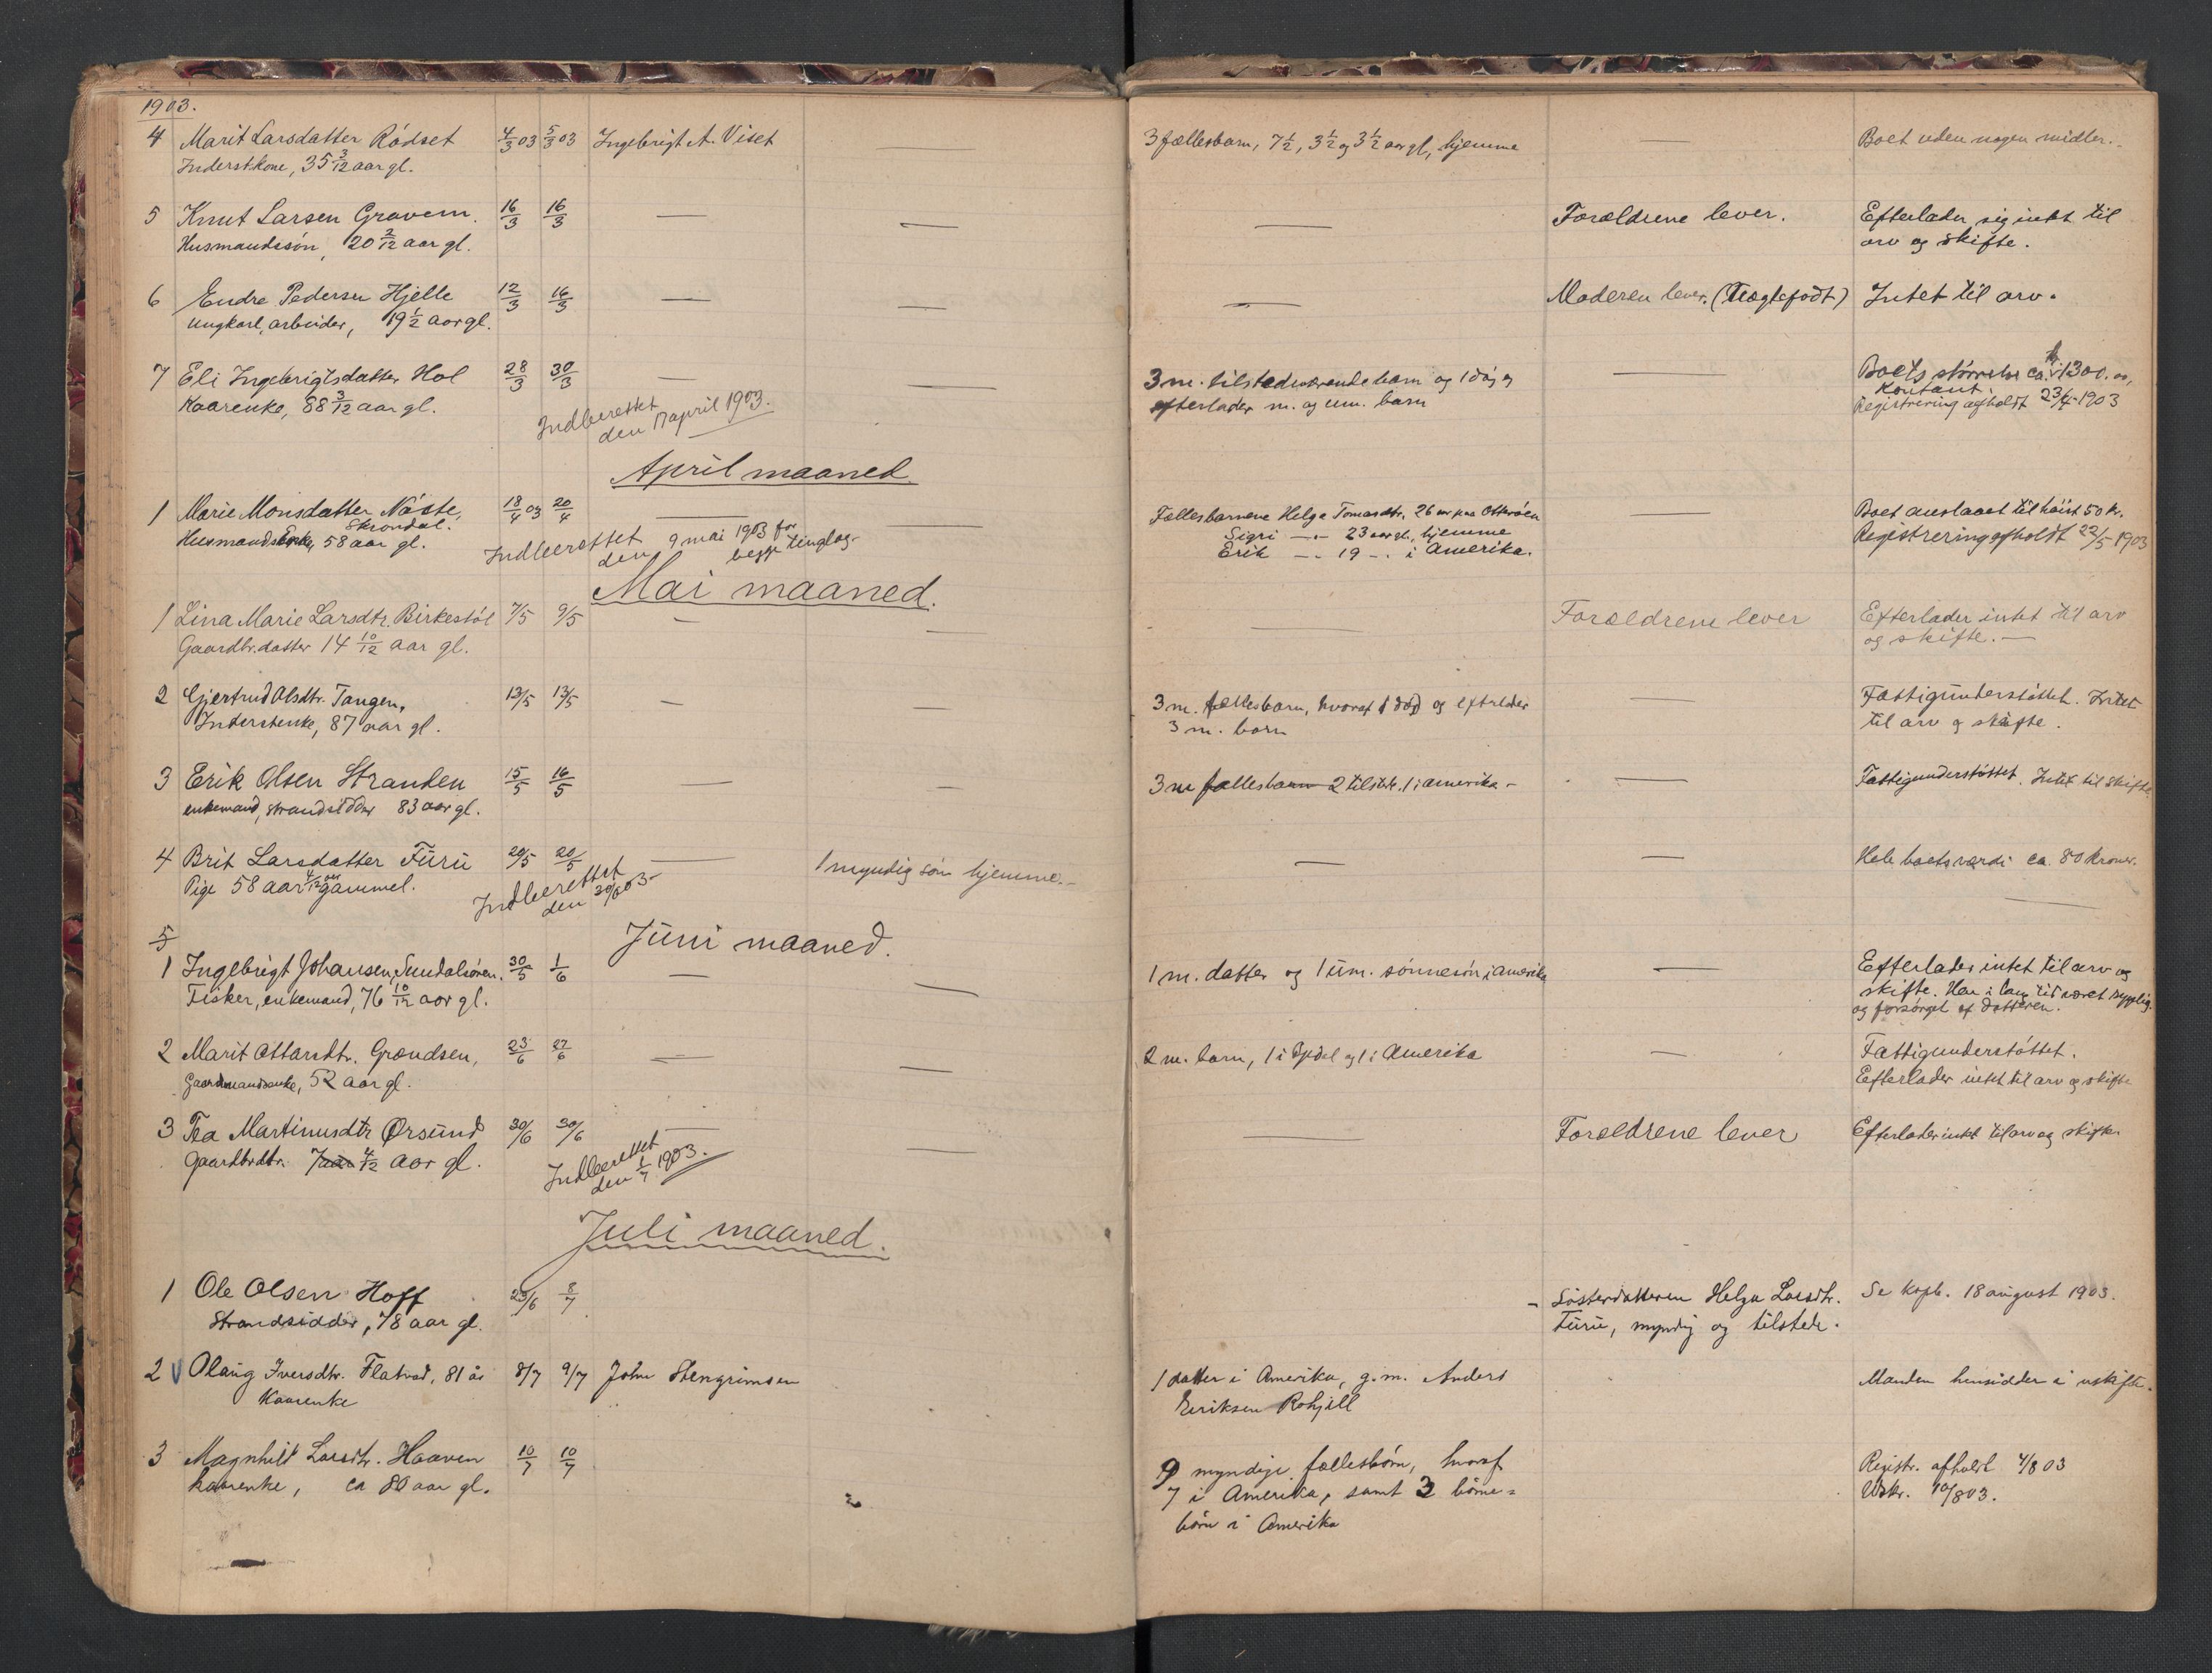 1903.
4 Marit Larsdatter Rödset 4/3 03 5/3 03 Ingebrigt A. Viset — 3 fællesbarn, 7 1/2, 3 1/2 og 3 1/2 aar gl, hjemme — Boet uden nogen midler.
Inderstkone, 35 3/12 aar gl.
5 Knut Larsen Gravem. 16/3 16/3 — — — Forældrene lever. Efterlader sig intet til
Husmandssön, 20 2/12 aar gl. arv og skifte.
6 Endre Pedersen Hjelle 12/3 16/3 — — — Moderen lever. (Uægtefødt) Intet til arv.
Ungkarl, arbeider, 19 1/2 aar gl.
7 Eli Ingebrigtsdatter Hol 28/3 30/3 — — 3 m. tilstedeværende barn og 1 död og — Boets störrelse ca. kr 1300.00,
Kaarenke, 88 3/12 aar gl. efterlader m. og um. barn Kontant.
Registrering afholdt 23/4-1903
Indberettet
den 17 april 1903.
April maaned
1 Marie Monsdatter Nöste, 18/4 03 20/4 — — Fællesbarnene Helga Tomasdtr. 26 aar paa Otteröen — Boet anslaaet til höist 50 kr.
Skrondal.
Husmandsenke, 58 aar gl. Sigri —"— 23 aar gl., hjemme Registrering afholdt 22/5 1903
Erik —"— 19 —"— i Amerika.
Indberettet 9 mai 1903 for
den begge tinglag
Mai maaned.
1 Lina Marie Larsdtr. Birkestöl 7/5 9/5 — — — Forældrene lever Efterlader intet til arv
Gaardbr.datter 14 10/12 aar gl. og skifte. —
2 Gjertrud Olsdtr. Tangen, 13/5 13/5 — — 3 m. fællesbarn, hvoraf 1 död og efterlader — Fattigunderstöttet. Intet
Inderstenke, 87 aar gl. 3 m. barn til arv og skifte.
3 Erik Olsen Stranden 15/5 16/5 — — 3 m fællesbarn 2 tilstede. 1 i amerika — — Fattigunderstöttet. Intet til skifte
enkemand, strandsidder 83 aar gl.
4 Brit Larsdatter Furu 20/5 20/5 — 1 myndig sön hjemme. — — — Hele boets værdi ca. 80 kroner.
Pige 58 aar 4/12 aar gammel.
Indberettet
den 30/6 03
5
Juni maaned.
1 Ingebrigt Johansen, Sundalsören. 30/5 1/6 — — 1 m. datter og 1 um. sönnesön i amerika — Efterlader intet til arv og
Fisker, enkemand, 76 10/12 aar gl. skifte. Har i lang tid været sygelig
og forsörget af datteren.
2 Marit Ottarsdtr. Grændsen, 23/6 27/6 — — 2 m. barn, 1 i Opdal og 1 i Amerika — Fattigunderstöttet.
Gaardmandsenke, 52 aar gl. Efterlader intet til arv og skifte
3 Tea Martinusdtr Ørsund 30/6 30/6 — — — Forældrene lever Efterlader intet til arv og skifte
Gaardbrdtr. 7 aar 4/12 aar gl.
Indberettet
den 1/7 1903.
Juli maaned.
1 Ole Olsen Hoff 23/6 8/7 — Sösterdatteren Helga Larsdtr. Se kopb. 18 august 1903.
Strandsidder, 78 aar gl. Furu, myndig og tilstede.
2 Olaug Iversdtr. Flatvad, 81 år 8/7 9/7 John Stengrimsen 1 datter i Amerika, g.m. Anders Manden hensidder i uskifte.
Kaarenke Eeriksen Rohjell
3 Magnhild Larsdtr. Haaven 10/7 10/7 9 myndige fællesbörn, hvoraf Registr. afholdt 4/8 03
kaarenke, ca 80 aar gl. 7 i Amerika, samt 3 börne= Udskr. 10/8 03.
börn i Amerika